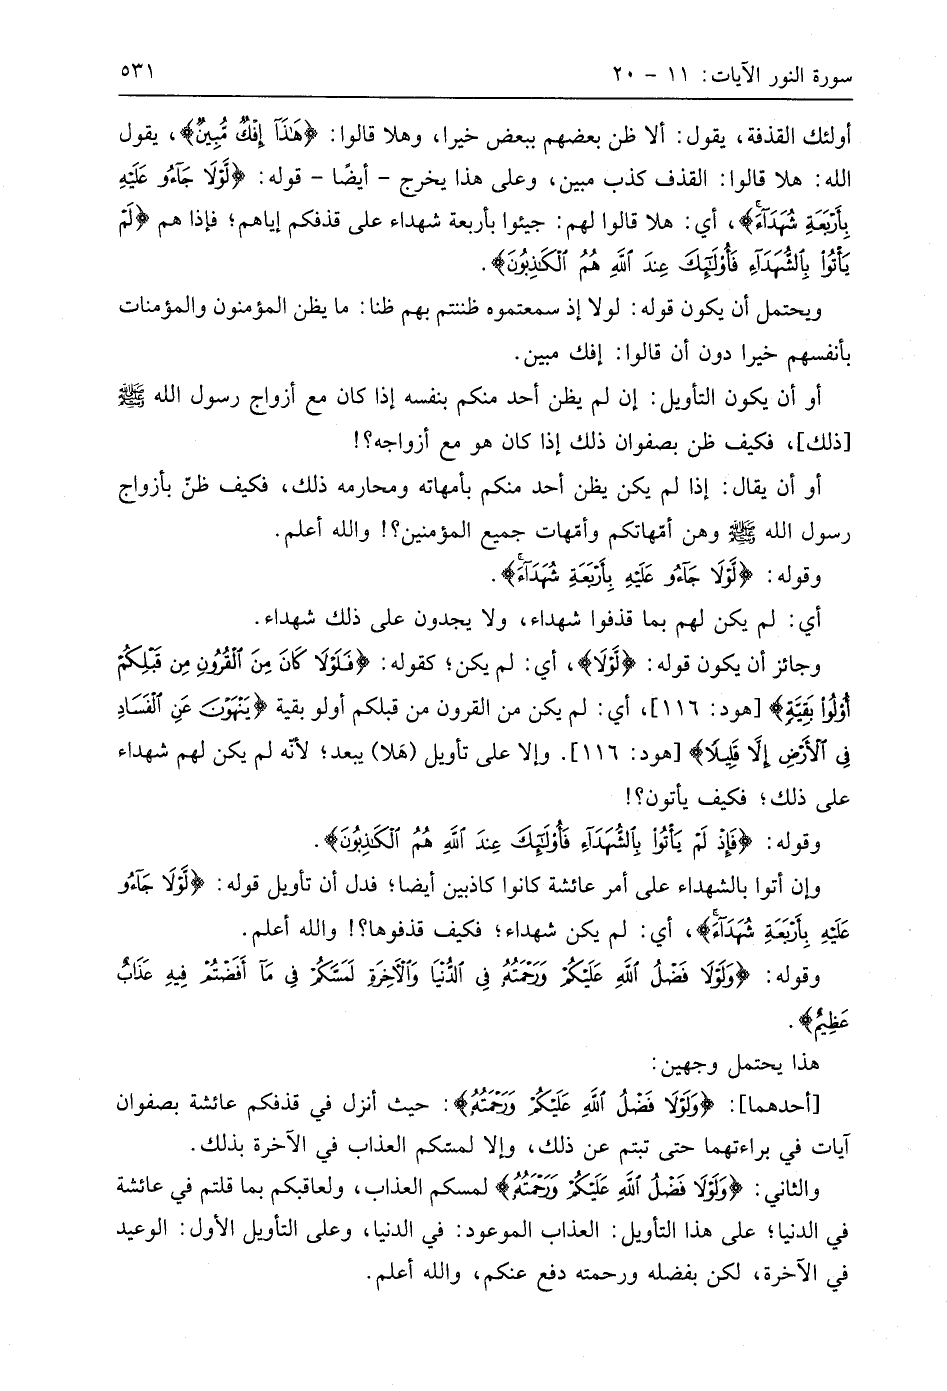 سورة النور الآيات: ١١ - ٢٠ ٥٣١
أولئك القذفة، يقول: ألا ظن بعضهم ببعض خيرا، وهلا قالوا: ﴿هَٰذَآ إِفْكٌ مُّبِينٌ﴾، يقول
الله: هلا قالوا: القذف كذب مبين، وعلى هذا يخرج - أيضًا - قوله: ﴿لَّوْلَا جَآءُو عَلَيْهِ
بِأَرْبَعَةِ شُهَدَآءَۚ﴾، أي: هلا قالوا لهم: جيئوا بأربعة شهداء على قذفكم إياهم؛ فإذا هم ﴿لَمْ
يَأْتُوا۟ بِٱلشُّهَدَآءِ فَأُو۟لَٰٓئِكَ عِندَ ٱللَّهِ هُمُ ٱلْكَٰذِبُونَ﴾.
ويحتمل أن يكون قوله: لولا إذ سمعتموه ظننتم بهم ظنا: ما يظن المؤمنون والمؤمنات
بأنفسهم خيرا دون أن قالوا: إفك مبين.
أو أن يكون التأويل: إن لم يظن أحد منكم بنفسه إذا كان مع أزواج رسول الله ﷺ
[ذلك]، فكيف ظن بصفوان ذلك إذا كان هو مع أزواجه؟!
أو أن يقال: إذا لم يكن يظن أحد منكم بأمهاته ومحارمه ذلك، فكيف ظنّ بأزواج
رسول الله ﷺ وهن أمّهاتكم وأمّهات جميع المؤمنين؟! والله أعلم.
وقوله: ﴿لَّوْلَا جَآءُو عَلَيْهِ بِأَرْبَعَةِ شُهَدَآءَۚ﴾.
أي: لم يكن لهم بما قذفوا شهداء، ولا يجدون على ذلك شهداء.
وجائز أن يكون قوله: ﴿لَّوْلَا﴾، أي: لم يكن؛ كقوله: ﴿فَلَوْلَا كَانَ مِنَ ٱلْقُرُونِ مِن قَبْلِكُمْ
أُو۟لُوا۟ بَقِيَّةٍ﴾ [هود: ١١٦]، أي: لم يكن من القرون من قبلكم أولو بقية ﴿يَنْهَوْنَ عَنِ ٱلْفَسَادِ
فِى ٱلْأَرْضِ إِلَّا قَلِيلًا﴾ [هود: ١١٦]. وإلا على تأويل (هَلا) يبعد؛ لأنّه لم يكن لهم شهداء
على ذلك؛ فكيف يأتون؟!
وقوله: ﴿فَإِذْ لَمْ يَأْتُوا۟ بِٱلشُّهَدَآءِ فَأُو۟لَٰٓئِكَ عِندَ ٱللَّهِ هُمُ ٱلْكَٰذِبُونَ﴾.
وإن أتوا بالشهداء على أمر عائشة كانوا كاذبين أيضا؛ فدل أن تأويل قوله: ﴿لَّوْلَا جَآءُو
عَلَيْهِ بِأَرْبَعَةِ شُهَدَآءَۚ﴾، أي: لم يكن شهداء؛ فكيف قذفوها؟! والله أعلم.
وقوله: ﴿وَلَوْلَا فَضْلُ ٱللَّهِ عَلَيْكُمْ وَرَحْمَتُهُۥ فِى ٱلدُّنْيَا وَٱلْءَاخِرَةِ لَمَسَّكُمْ فِى مَآ أَفَضْتُمْ فِيهِ عَذَابٌ
عَظِيمٌ﴾.
هذا يحتمل وجهين:
[أحدهما]: ﴿وَلَوْلَا فَضْلُ ٱللَّهِ عَلَيْكُمْ وَرَحْمَتُهُۥ﴾: حيث أنزل في قذفكم عائشة بصفوان
آيات في براءتهما حتى تبتم عن ذلك، وإلا لمسّكم العذاب في الآخرة بذلك.
والثاني: ﴿وَلَوْلَا فَضْلُ ٱللَّهِ عَلَيْكُمْ وَرَحْمَتُهُۥ﴾ لمسكم العذاب، ولعاقبكم بما قلتم في عائشة
في الدنيا؛ على هذا التأويل: العذاب الموعود: في الدنيا، وعلى التأويل الأول: الوعيد
في الآخرة، لكن بفضله ورحمته دفع عنكم، والله أعلم.